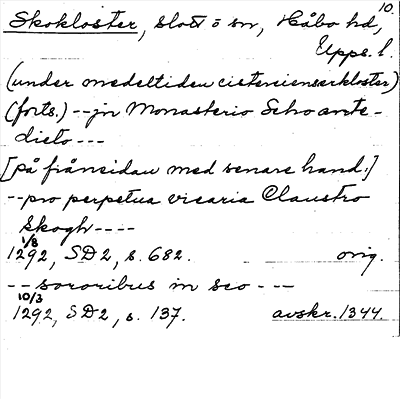 10.
Skokloster, slott o sn, Håbo hd,
Upps. l.
(under medeltiden cistercienserkloster)
(forts.) -- jn Monasterio Scho ante-
dicto ---
[på frånsidan med senare hand:]
-- pro perpetua vicaria Claustro
Skogh ----
1/8
1292, SD2, s. 682. orig.
-- sororibus in sco ---
10/3
1292, SD2, s. 137. avskr. 1344.